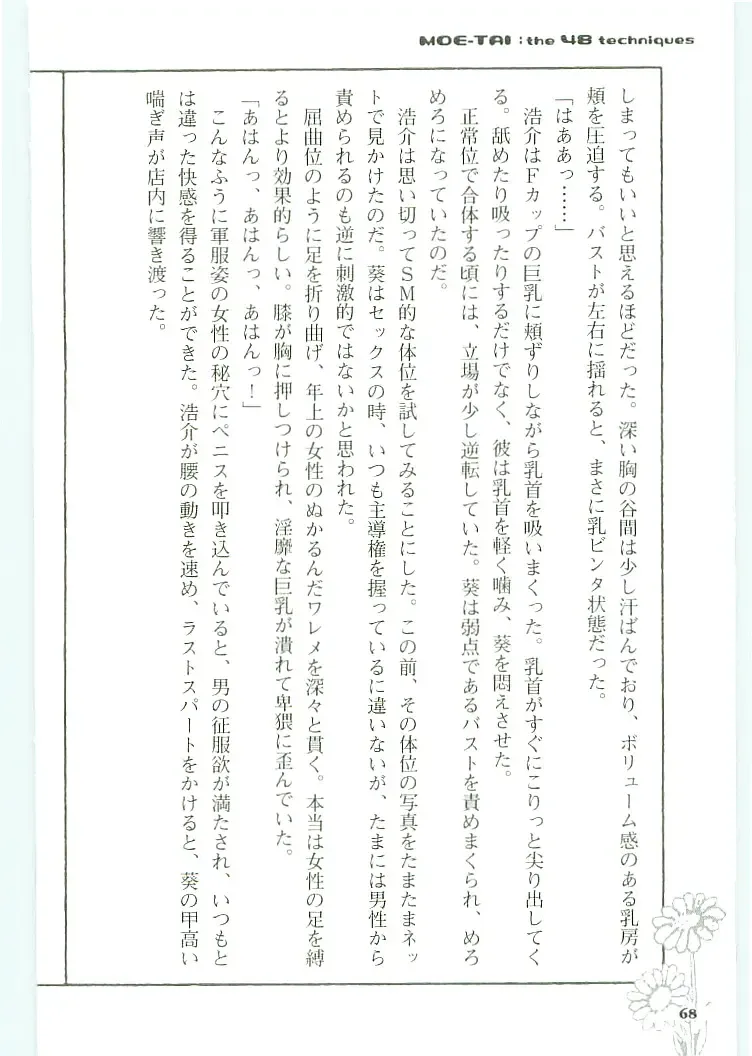 MOE-TAI : the 48 techniques
しまってもいいと思えるほどだった。深い胸の谷間は少し汗ばんでおり、ボリューム感のある乳房が
頬を圧迫する。バストが左右に揺れると、まさに乳ビンタ状態だった。
「はああっ……」
浩介はFカップの巨乳に頬ずりしながら乳首を吸いまくった。乳首がすぐにこりっと尖り出してく
る。舐めたり吸ったりするだけでなく、彼は乳首を軽く噛み、葵を悶えさせた。
正常位で合体する頃には、立場が少し逆転していた。葵は弱点であるバストを責めまくられ、めろ
めろになっていたのだ。
浩介は思い切ってSM的な体位を試してみることにした。この前、その体位の写真をたまたまネッ
トで見かけたのだ。葵はセックスの時、いつも主導権を握っているに違いないが、たまには男性から
責められるのも逆に刺激的ではないかと思われた。
屈曲位のように足を折り曲げ、年上の女性のぬかるんだワレメを深々と貫く。本当は女性の足を縛
るとより効果的らしい。膝が胸に押しつけられ、淫靡な巨乳が潰れて卑猥に歪んでいた。
「あはんっ、あはんっ、あはんっ！」
こんなふうに軍服姿の女性の秘穴にペニスを叩き込んでいると、男の征服欲が満たされ、いつもと
は違った快感を得ることができた。浩介が腰の動きを速め、ラストスパートをかけると、葵の甲高い
喘ぎ声が店内に響き渡った。
68